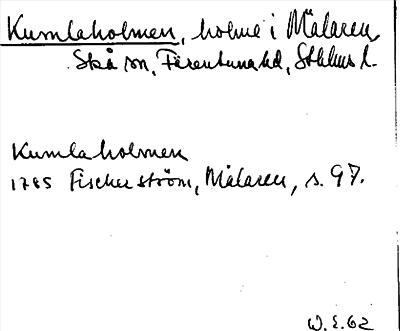 Kumlaholmen, holme i Mälaren,
Skå sn, Färentuna hd, Sthlms l.
Kumlaholmen
1785 Fischerström, Mälaren, s. 97.
W.E.62